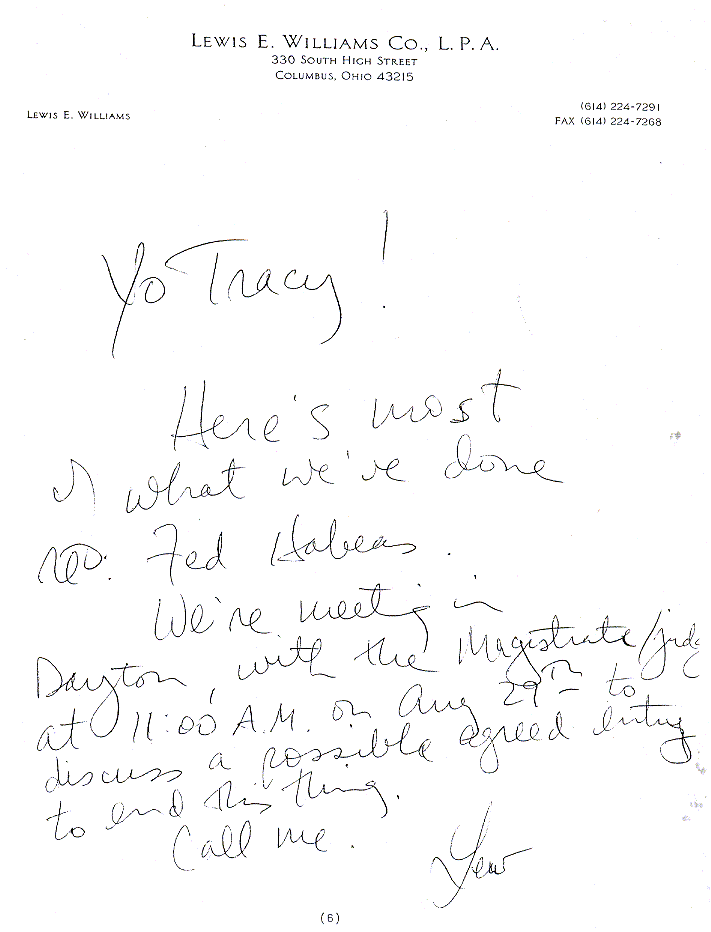 LEWIS E. WILLIAMS CO., L. P. A.
330 SOUTH HIGH STREET
COLUMBUS, OHIO 43215
LEWIS E. WILLIAMS
(614) 224-7291
FAX (614) 224-7268
Yo Tracy!
Here's most
of what we've done
re: Fed Habeas.
We're meeting in
Dayton, with the Magistrate/judg
at 11:00 A.M. on Aug 29th to
discuss a possible agreed entry
to end this thing.
Call me.
Lew
(6)